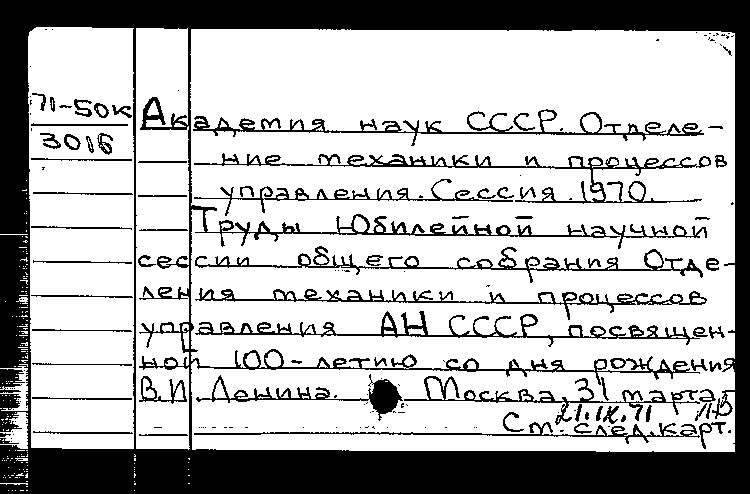 71-50к
3016
Академия наук СССР. Отделе-
ние механики и процессов
управления. Сессия. 1970.
Труды Юбилейной научной
сессии общего собрания Отде-
ления механики и процессов
управления АН СССР, посвящен-
ной 100-летию со дня рождения
В.И. Ленина. Москва, 31 марта-
21.IX.71
См. след. карт.